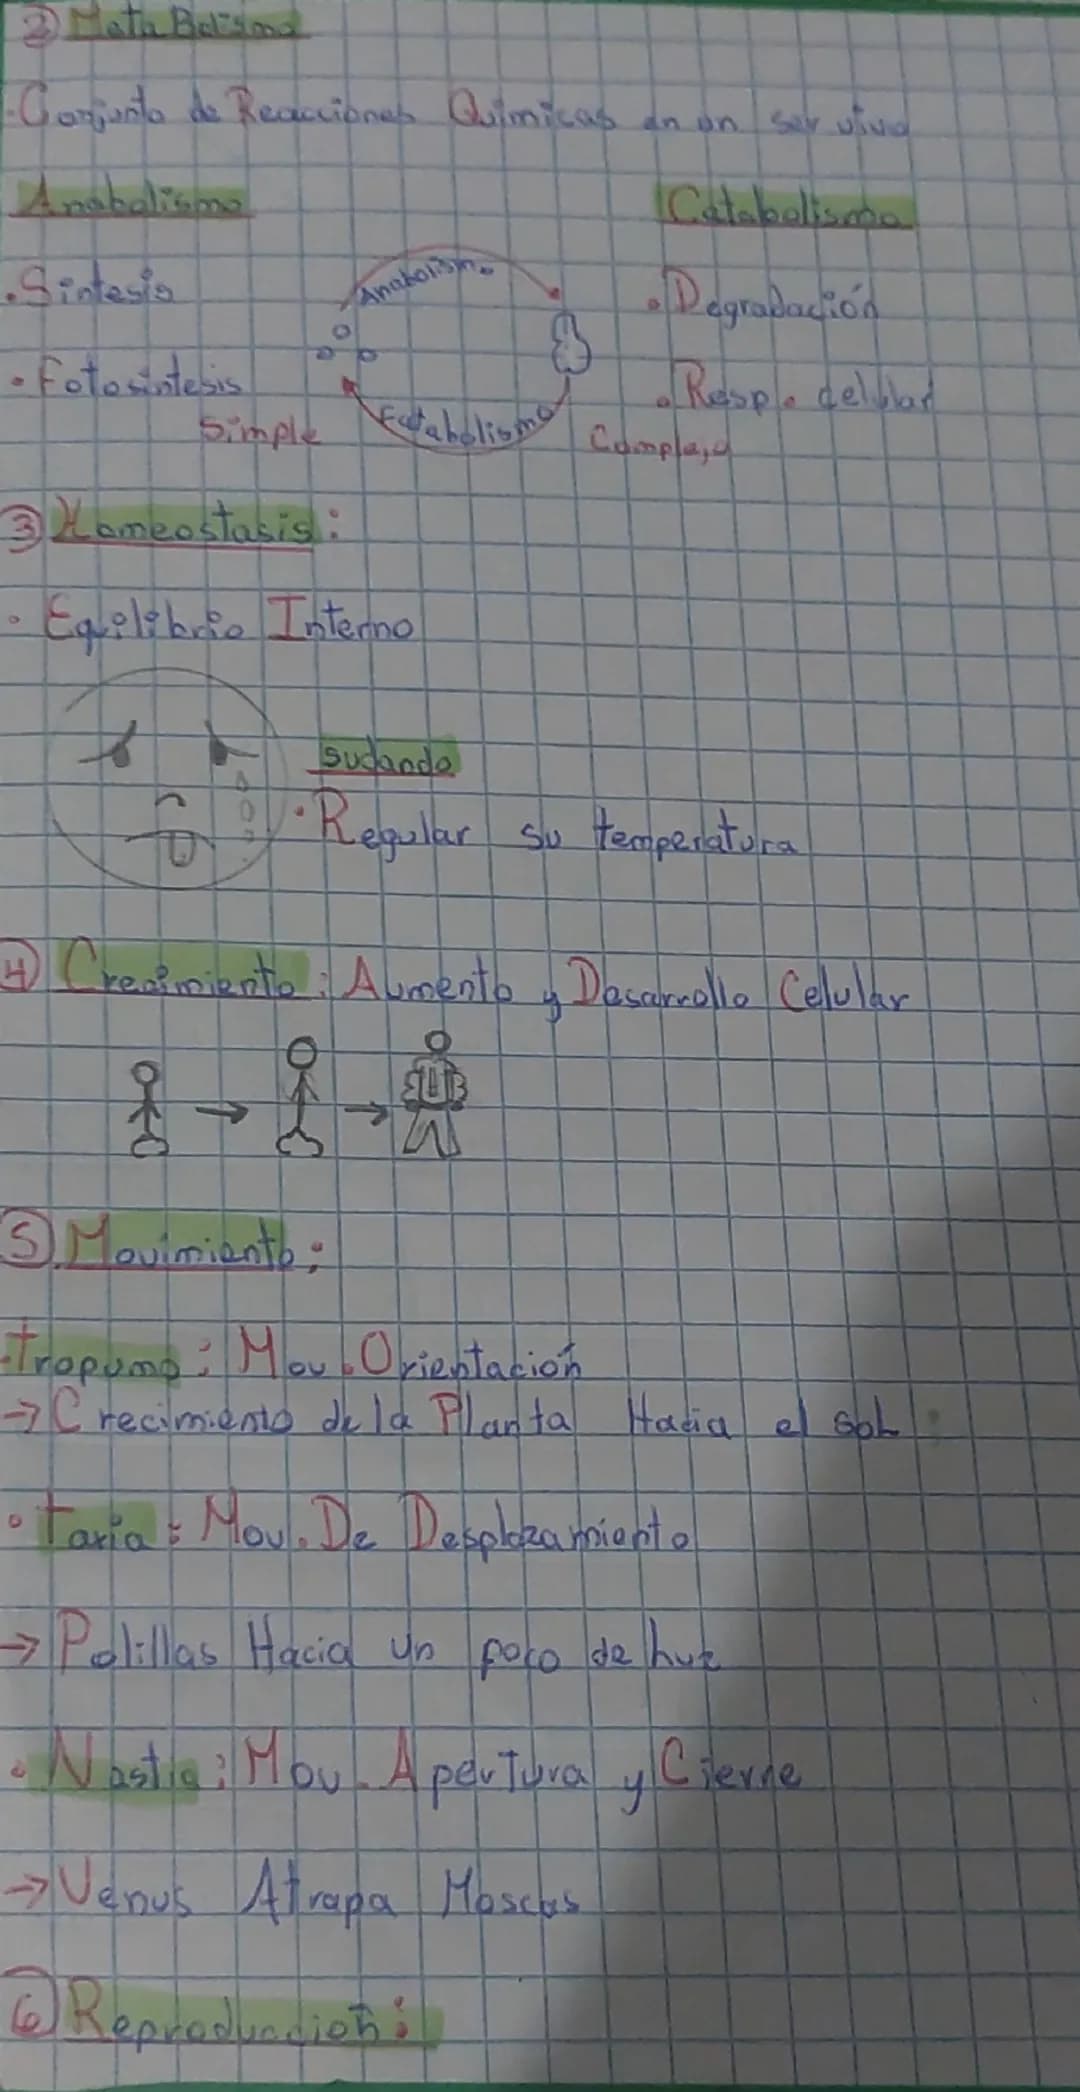 ② MetaBolismo
·Conjunto de Reacciones Químicas en un ser vivo
Anabolismo Catabolismo
·Síntesis Anabolismo ·Degradación
·Fotosíntesis Catabolismo ·Resp. Celular
Simple Complejo
③ Homeostasis:
· Equilibrio Interno
sudando
·Regular su temperatura
④ Crecimiento: Aumento y Desarrollo Celular
⑤ Movimiento:
·Tropismo: Mov. Orientación
→ Crecimiento de la Planta Hacia el Sol
·Taxia: Mov. De Desplazamiento
→ Polillas Hacia un foco de luz
·Nastia: Mov. Apertura y Cierre
→ Venus Atrapa Moscas
⑥ Reproducción: